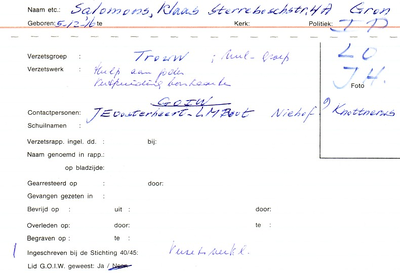 Naam etc.: Salomons, Klaas Sterreboschstr. 4A Gron
Geboren: 5-12-16 te Kerk: Politiek: J P
Verzetsgroep : Trouw ;
LO
Verzetswerk : Hulp aan joden
J4.
Verspreiding
Foto
G.O.I.W
Contactpersonen: L.M. Niehof ? Knottnerus
Schuilnaam :
Verzetsrapp. ingel. dd. : bij:
Naam genoemd in rapp.:
op bladzijde:
Gearresteerd op : door:
Gevangen gezeten in :
Bevrijd op : uit : door:
Overleden op: te : door:
Begraven op : te :
Ingeschreven bij de Stichting 40/45:
Lid G.O.I.W. geweest: Ja / Neen